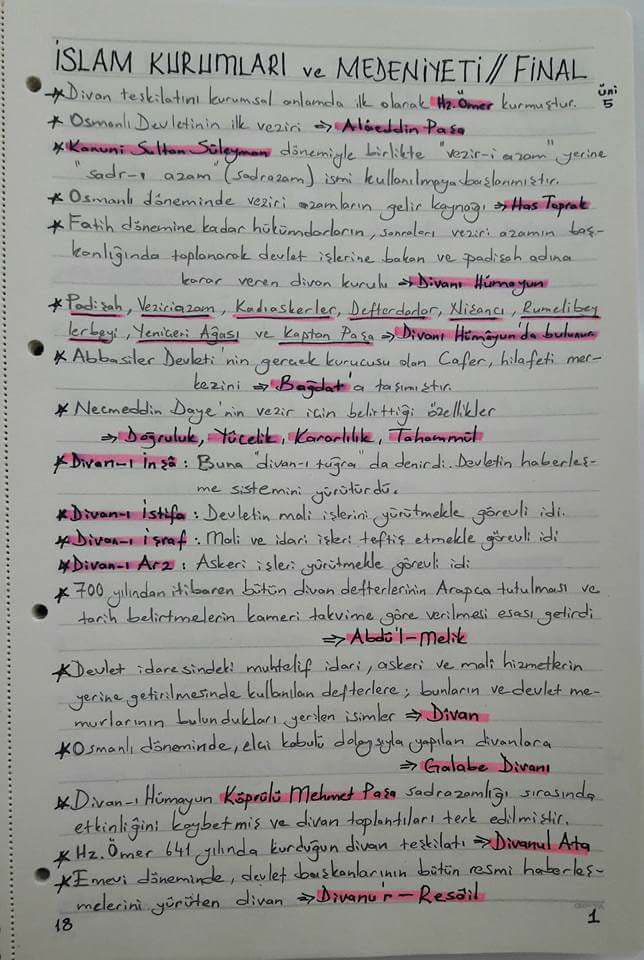 İSLAM KURUMLARI ve MEDENİYETİ // FİNAL
Üni 5
* Divan teşkilatını kurumsal anlamda ilk olarak Hz. Ömer kurmuştur.
* Osmanlı Devletinin ilk veziri => Alâeddin Paşa
* Kanuni Sultan Süleyman dönemiyle birlikte "vezir-i azam" yerine
"sadr-ı azam" (sadrazam) ismi kullanılmaya başlanmıştır.
* Osmanlı döneminde veziri azamların gelir kaynağı => Has Toprak
* Fatih dönemine kadar hükümdarların, sonraları veziri azamın baş-
kanlığında toplanarak devlet işlerine bakan ve padişah adına
karar veren divan kurulu => Divanı Hümayun
* Padişah, Veziriazam, Kadıaskerler, Defterdarlar, Nişancı, Rumelibey
lerbeyi, Yeniçeri Ağası ve Kaptan Paşa => Divanı Hümâyun'da bulunur
* Abbasiler Devleti'nin gerçek kurucusu olan Cafer, hilafeti mer-
kezini => Bağdat'a taşımıştır.
* Necmeddin Daye'nin vezir için belirttiği özellikler
=> Doğruluk, Yücelik, Kararlılık, Tahammül
* Divan-ı İnşâ : Buna "divan-ı tuğra" da denirdi. Devletin haberleş-
me sistemini yürütürdü.
* Divan-ı İstifa : Devletin mali işlerini yürütmekle görevli idi.
* Divan-ı İşraf : Mali ve idari işleri teftiş etmekle görevli idi
* Divan-ı Arz : Askeri işleri yürütmekle görevli idi
* 700 yılından itibaren bütün divan defterlerinin Arapça tutulması ve
tarih belirtmelerin kameri takvime göre verilmesi esası getirdi
=> Abdü'l-Melik
* Devlet idaresindeki muhtelif idari, askeri ve mali hizmetlerin
yerine getirilmesinde kullanılan defterlere; bunların ve devlet me-
murlarının bulundukları yerilen isimler => Divan
* Osmanlı döneminde, elçi kabulü dolayısıyla yapılan divanlara
=> Galabe Divanı
* Divan-ı Hümayun Köprülü Mehmet Paşa sadrazamlığı sırasında
etkinliğini kaybetmiş ve divan toplantıları terk edilmiştir.
* Hz. Ömer 641 yılında kurduğun divan teşkilatı => Divanul Ata
* Emevi döneminde, devlet başkanlarının bütün resmi haberleş-
melerini yürüten divan => Divanu'r-Resâil
18
1